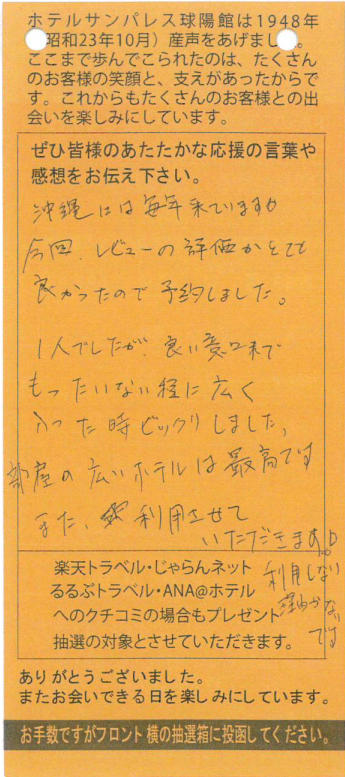 ホテルサンパレス球陽館は1948年
(昭和23年10月)産声をあげました。
ここまで歩んでこられたのは、たくさん
のお客様の笑顔と、支えがあったからで
す。これからもたくさんのお客様との出
会いを楽しみにしています。
ぜひ皆様のあたたかな応援の言葉や
感想をお伝え下さい。
沖縄には毎年来ていますが
今回、レビューの評価がとても
良かったので予約しました。
1人でしたが、良い意味で
もったいない程に広く
入った時ビックリしました、
部屋の広いホテルは最高です
また、利用させて
いただきます
利用しない
理由がない
です
楽天トラベル・じゃらんネット
るるぶトラベル・ANA@ホテル
へのクチコミの場合もプレゼント
抽選の対象とさせていただきます。
ありがとうございました。
またお会いできる日を楽しみにしています。
お手数ですがフロント横の抽選箱に投函してください。